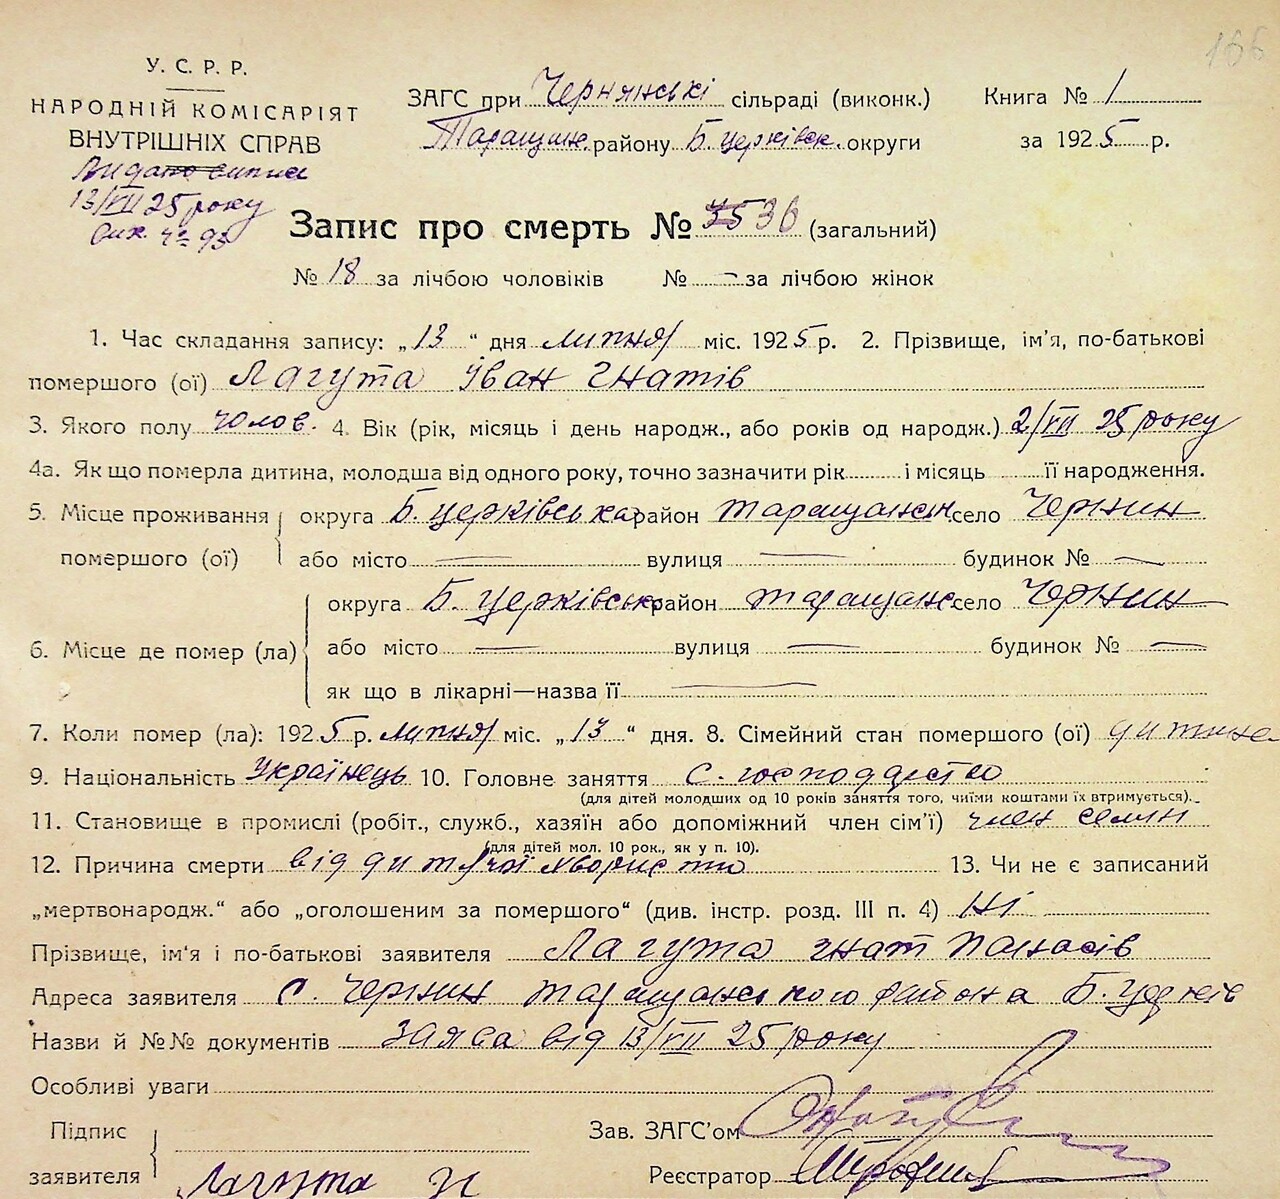 166
У. С. Р. Р.
НАРОДНІЙ КОМІСАРІЯТ
ВНУТРІШНІХ СПРАВ
Видано
13/VII 25 року
ЗАГС при Чернянські сільраді (виконк.)
Таращан. району Б. церківськ. округи
Книга № 1
за 1925 р.
Запис про смерть № 36 (загальний)
№ 18 за лічбою чоловіків № — за лічбою жінок
1. Час складання запису: „13“ дня липня міс. 1925 р. 2. Прізвище, ім’я, по-батькові
помершого (ої) Лагута Іван Гнатів
3. Якого полу чолов. 4. Вік (рік, місяць і день народж., або років од народж.) 2/VII 25 року
4а. Як що померла дитина, молодша від одного року, точно зазначити рік і місяць її народження.
5. Місце проживання помершого (ої) округа Б. церківська район таращанськ село Чернин
або місто — вулиця — будинок № —
6. Місце де помер (ла) округа Б. церківськ район таращанс село Чернин
або місто — вулиця — будинок № —
як що в лікарні—назва її —
7. Коли помер (ла): 1925 р. липня міс. „13“ дня. 8. Сімейний стан помершого (ої) дитина
9. Національність Українець 10. Головне заняття с. господарство
(для дітей молодших од 10 років заняття того, чиїми коштами їх втримується).
11. Становище в промислі (робіт., служб., хазяїн або допоміжний член сім’ї) член семьи
(для дітей мол. 10 рок., як у п. 10).
12. Причина смерти від дитячої 13. Чи не є записаний
„мертвонародж.“ або „оголошеним за помершого“ (див. інстр. розд. III п. 4) ні
Прізвище, ім’я і по-батькові заявителя Лагута Гнат Панасів
Адреса заявителя с. Чернин таращанського района Б. Церків
Назви й №№ документів заява від 13/VII 25 року
Особливі уваги
Підпис
заявителя Лагута
Зав. ЗАГС’ом
Реєстратор